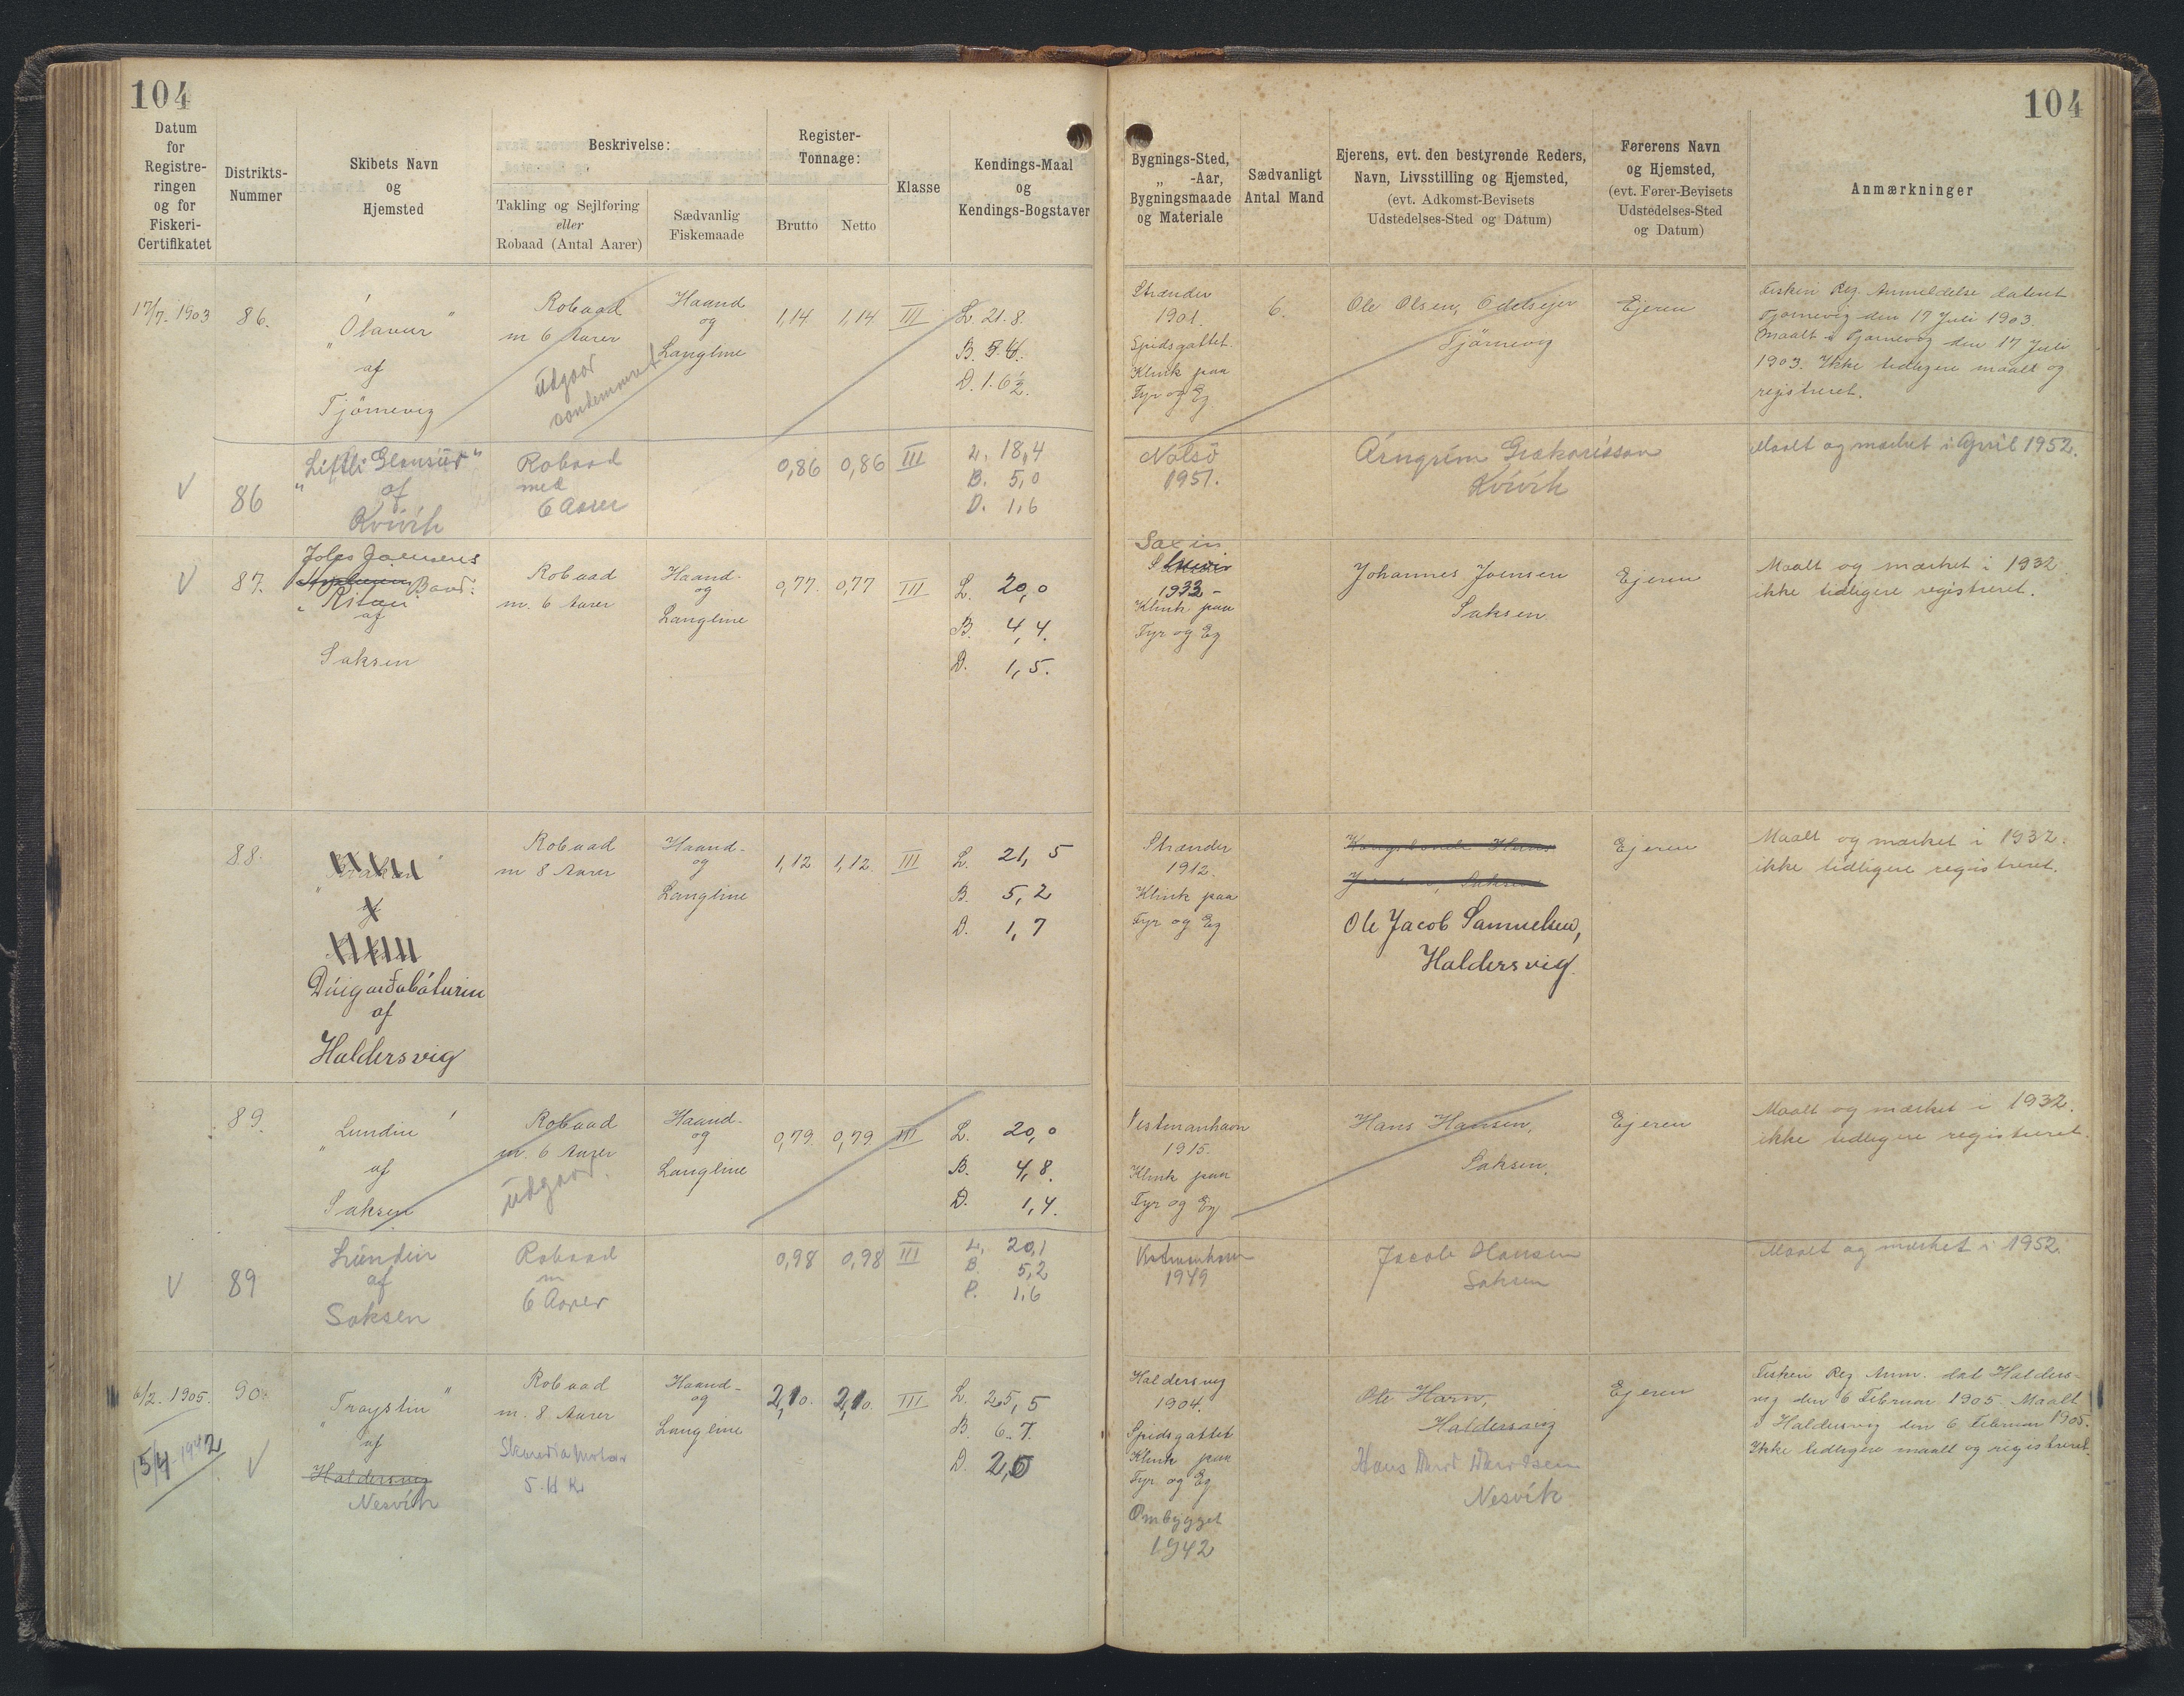 104
104
Datum
for
Registre-
ringen
og for
Fiskeri-
Certifikatet
Distrikts-
Nummer
Skibets Navn
og
Hjemsted
Beskrivelse:
Takling og Sejlføring
eller
Robaad (Antal Aarer)
Sædvanlig
Fiskemaade
Register-
Tonnage:
Brutto
Netto
Klasse
Kendings-Maal
og
Kendings-Bogstaver
Bygnings-Sted,
„ -Aar,
Bygningsmaade
og Materiale
Sædvanligt
Antal Mand
Ejerens, evt. den bestyrende Reders,
Navn, Livsstilling og Hjemsted,
(evt. Adkomst-Bevisets
Udstedelses-Sted og Datum)
Førerens Navn
og Hjemsted,
(evt. Fører-Bevisets
Udstedelses-Sted
og Datum)
Anmærkninger
17/7. 1903
86.
„Ólavur"
af
Tjörnevig
Robaad
m 6 Aarer
Udgaar
condemneret
Haand
og
Langline
1,14
1,14
III
L. 21.8.
B. 5.4.
D. 1.6½.
Strænder
1901.
Spidsgattet.
Klink paa
Fyr og Eg
6.
Ole Olsen, Odelsejer
Tjörnevig
Ejeren
Fiskeri Reg. Anmeldelse dateret
Tjörnevig den 17 Juli 1903.
Maalt i Tjörnevig den 17 Juli
1903. Ikke tidligere maalt og
registreret.
V
86
„Littli Glensur"
af
Kvívík
Robaad
med
6 Aarer
0,86
0,86
III
L. 18,4
B. 5,0
D. 1,6
Nolsö
1951.
Árngrím
Kvívík
Maalt og mærket i April 1952.
V
87.
Joensens Baad:
„Ritan"
af
Saksen
Robaad
m. 6 Aarer
Haand-
og
Langline
0,77.
0,77
III
L. 20,0
B. 4,4.
D. 1,5.
Saxin
1932 -
Klink paa
Fyr og Eg
Johannes Joensen
Saksen
Ejeren
Maalt og mærket i 1932
ikke tidligere registreret.
88.
af
Dúigarðabáturin
af
Haldersvig
Robaad
m 8 Aarer
Haand-
og
Langline
1,12
1,12.
III
L. 21,5
B. 5,2
D. 1,7
Strænder
1912.
Klink paa
Fyr og Eg
Kongsbonde Hans
Joensen, Saksen
Ole Jacob Samuelsen,
Haldersvig.
Ejeren
Maalt og mærket i 1932.
ikke tidligere registreret.
89.
„Lundin"
af
Saksen
Robaad
m. 6 Aarer
Udgaar.
Haand-
og
Langline
0,79.
0,79
III
L. 20,0
B. 4,8.
D. 1,4.
Vestmanhavn
1915.
Klink paa
Fyr og Eg
Hans Hansen,
Saksen.
Ejeren
Maalt og mærket i 1932.
ikke tidligere registreret.
V
89
Lundin
af
Saksen
Robaad
m
6 Aarer
0,98
0,98
III
L. 20,1
B. 5,2
D. 1,6
Vestmanhavn
1949
Jacob Hansen
Saksen
Maalt og mærket i 1952.
6/2. 1905.
15/4-1942
V
90.
„Troystin"
af
Haldersvig
Nesvík
Robaad
m. 8 Aarer
Skandia Motor
5. H K
Haand-
og
Langline
2,10.
2,10.
III
L. 25,5
B. 6.7.
D. 2,0
Haldersvig
1904.
Spidsgattet
Klink paa
Fyr og Eg
Ombygget
1942
Ole Harw,
Haldersvig
Hans
Nesvík
Ejeren
Fiskeri Reg. Anm. dat Halders-
vig den 6 Februar 1905. Maalt
i Haldersvig den 6 Februar 1905.
Ikke tidligere maalt og registreret.